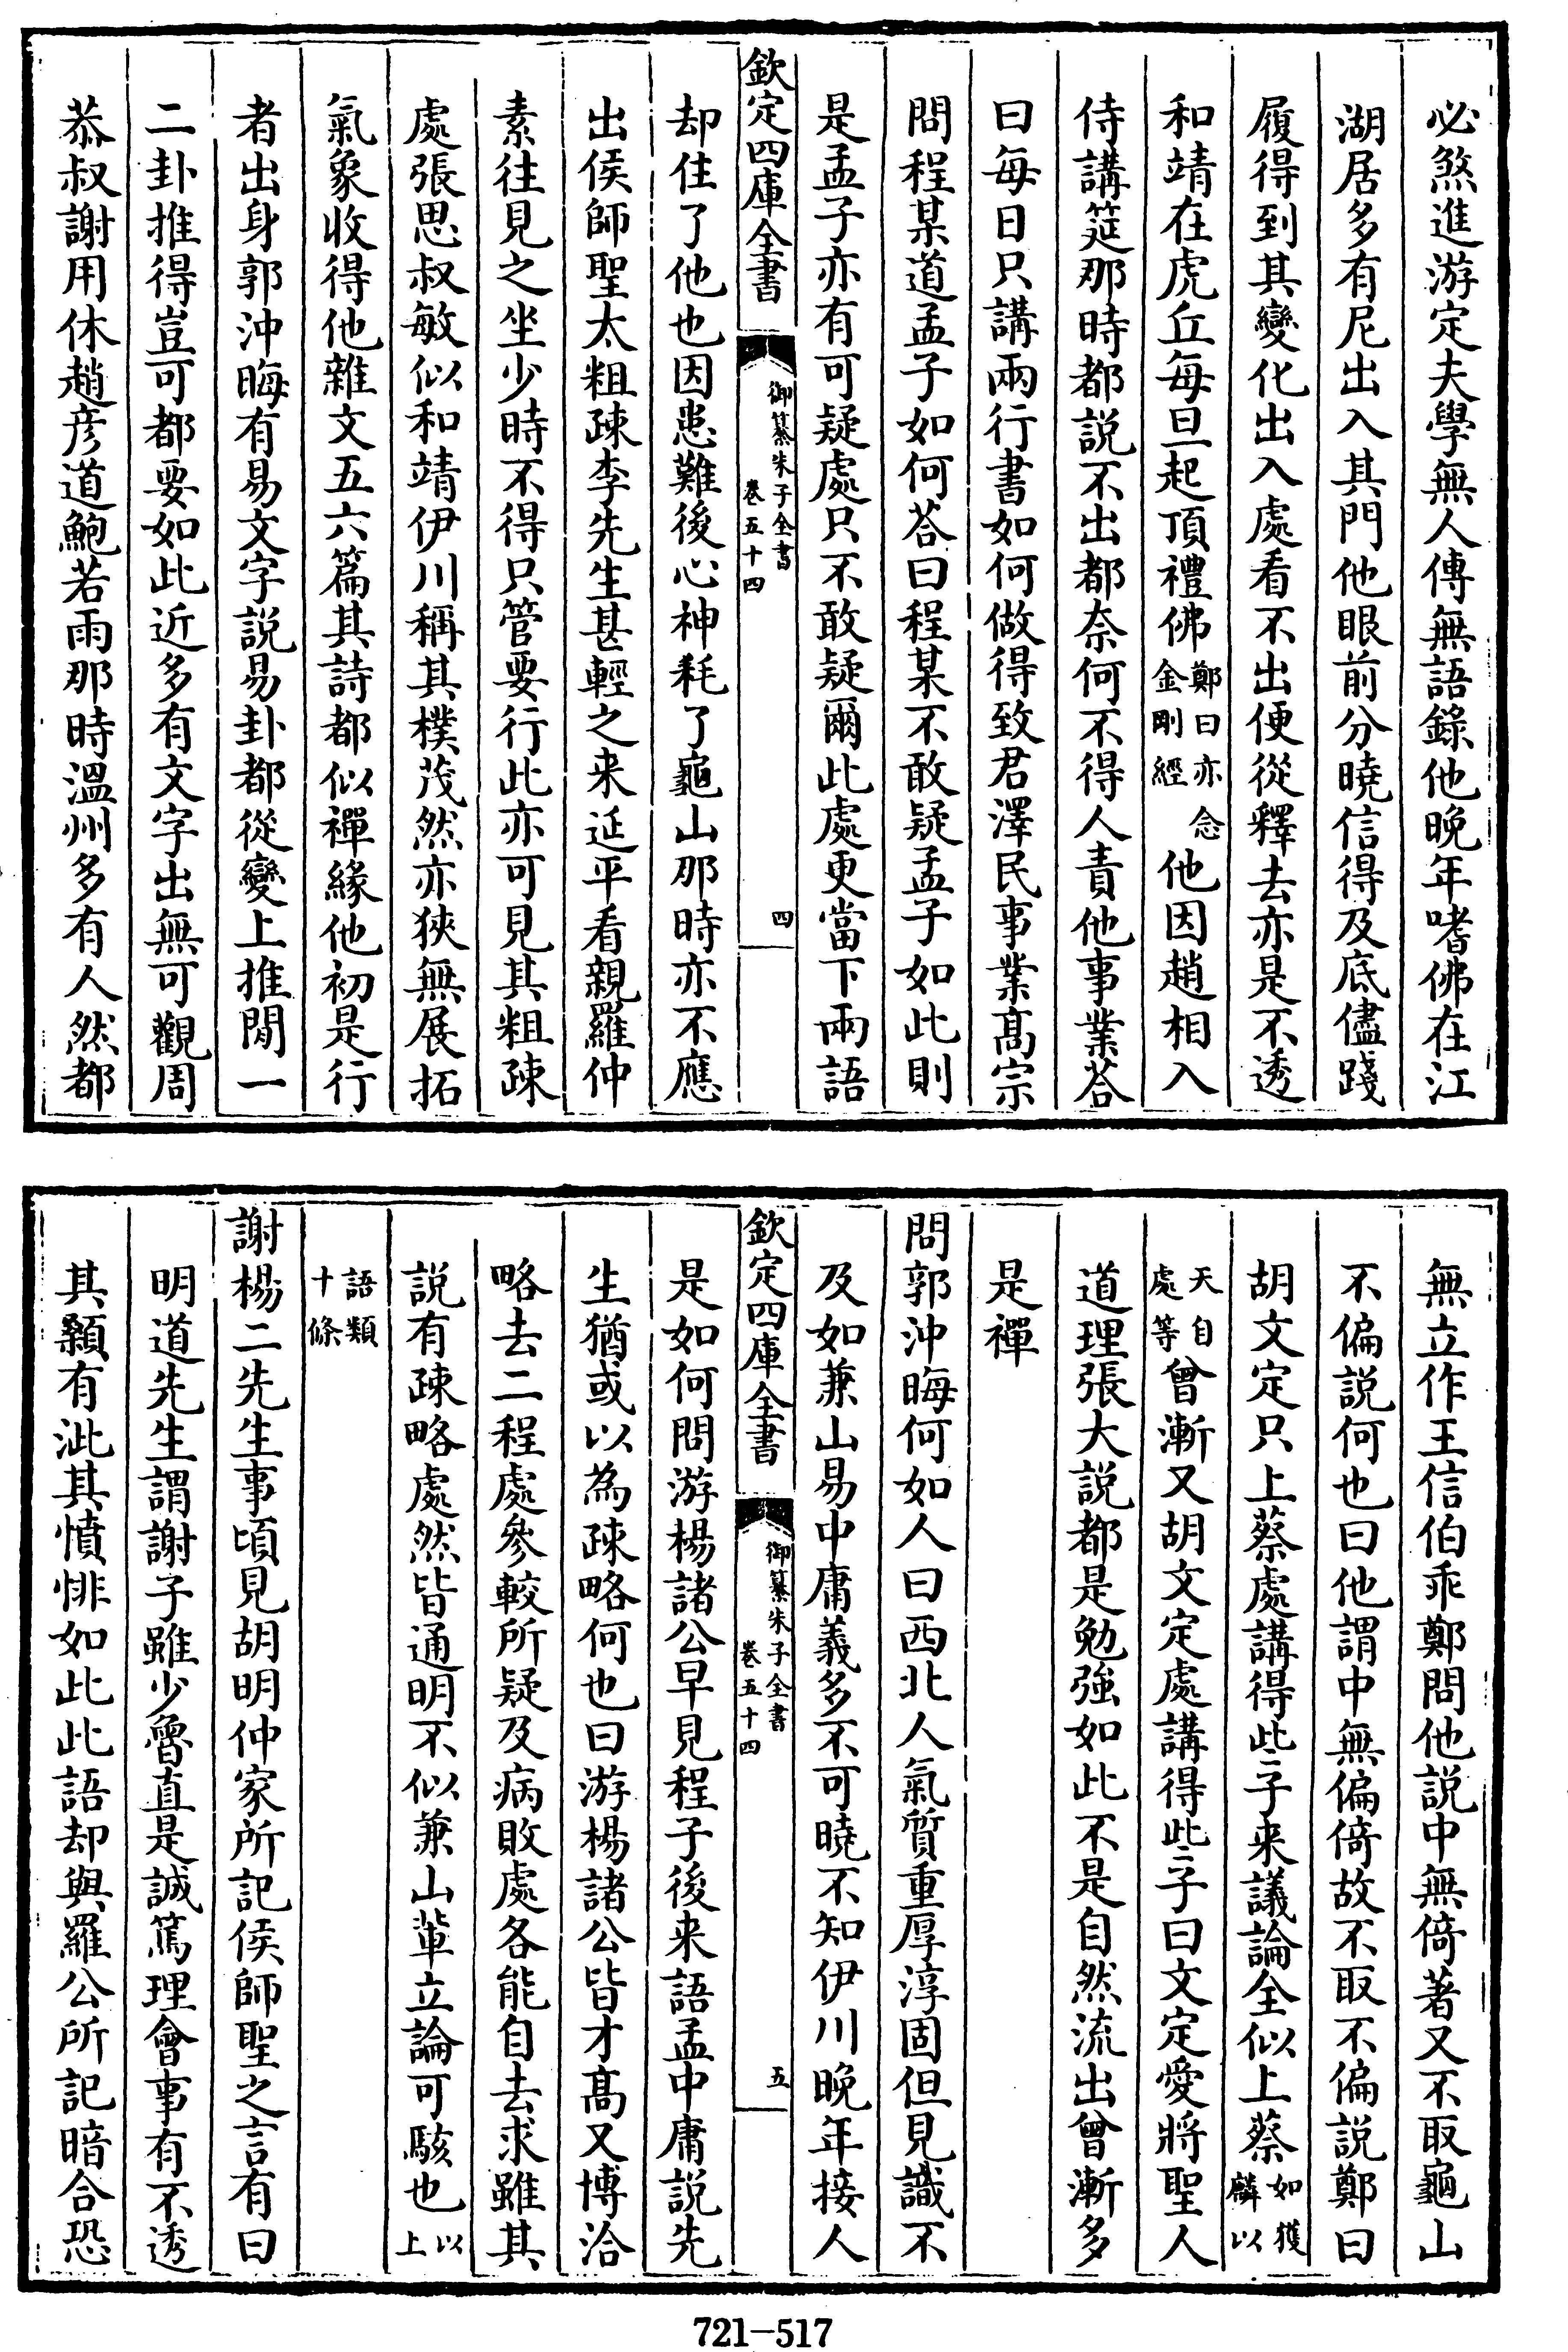 必煞進游定夫學無人傳無語錄他晚年嗜佛在江
湖居多有尼出入其門他眼前分曉信得及底儘踐
履得到其變化出入處看不出便從釋去亦是不透
和靖在虎丘每旦起頂禮佛鄭曰亦念金剛經他因趙相入
侍講筵那時都説不出都奈何不得人責他事業荅
曰每日只講兩行書如何做得致君澤民事業髙宗
問程某道孟子如何荅曰程某不敢疑孟子如此則
是孟子亦有可疑處只不敢疑爾此處更當下兩語
欽定四庫全書
御纂朱子全書
卷五十四
四
却住了他也因患難後心神耗了龜山那時亦不應
出侯師聖太粗疎李先生甚輕之来延平看親羅仲
素往見之坐少時不得只管要行此亦可見其粗疎
處張思叔敏似和靖伊川稱其樸茂然亦狹無展拓
氣象收得他雜文五六篇其詩都似禪緣他初是行
者出身郭沖晦有易文字説易卦都從變上推閒一
二卦推得豈可都要如此近多有文字出無可觀周
恭叔謝用休趙彦道鮑若雨那時溫州多有人然都
無立作王信伯乖鄭問他説中無倚著又不取龜山
不偏説何也曰他謂中無偏倚故不取不偏説鄭曰
胡文定只上蔡處講得些子来議論全似上蔡如獲麟以
天自處等曾漸又胡文定處講得些子曰文定愛將聖人
道理張大説都是勉強如此不是自然流出曾漸多
是禪
問郭沖晦何如人曰西北人氣質重厚淳固但見識不
及如兼山易中庸義多不可曉不知伊川晚年接人
欽定四庫全書
御纂朱子全書
卷五十四
五
是如何問游楊諸公早見程子後来語孟中庸説先
生猶或以為疎略何也曰游楊諸公皆才髙又博洽
略去二程處參較所疑及病敗處各能自去求雖其
説有疎略處然皆通明不似兼山輩立論可駭也以上
語類十條
謝楊二先生事頃見胡明仲家所記侯師聖之言有曰
明道先生謂謝子雖少魯直是誠篤理會事有不透
其顙有泚其憤悱如此此語却與羅公所記暗合恐
721-517